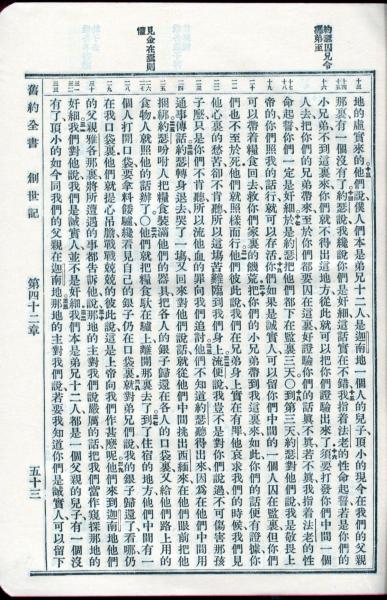 約瑟因兄令
攜弟至
見金在囊則
懼
地的虛實來的他們說僕人們本是弟兄十二人是迦南地一個人的兒子頂小的現今在我們的父親
那裏有一個沒有了約瑟說我纔說你們是奸細這話實在不錯我指着法老的性命起誓若是你們的
小兄弟不到這裏來你們就不得出這地方從此就可以把你們證驗出來了須要打發你們中間一個
人去把你們的兄弟帶來至於你們都要囚在這裏好證驗你們的話真不真若不真我指着法老的性
命起誓你們一定是奸細於是約瑟把他們都下在監裏三天〇到第三天約瑟對他們說我是敬畏上
帝的你們照我的話行就可以存活你們如果是誠實人可以留你們中間的一個人囚在監裏但你們
可以帶着糧食回去救你們家裏的饑荒把你們的小兄弟帶到我這裏來如此你們的話便有證據你
們也不至於死他們就照樣而行他們彼此說我們在兄弟身上實在有罪他哀求我們的時候我們見
他心裏的愁苦卻不肯聽所以這場苦難臨到我們身上流便說我豈不是對你們說過不可傷害那孩
子麼只是你們不肯聽所以流他血的罪向我們追討他們不知道約瑟聽得出來因爲在他們中間用
通事傳話約瑟轉身退去哭了一場又回來對他們說話就從他們中間挑出西緬來在他們眼前把他
捆綁約瑟吩咐人把糧食裝滿他們的器具把各人的銀子歸還在各人的口袋裏又給他們路上用的
食物人就照他的話辦了〇他們就把糧食馱在驢上離開那裏去了到了住宿的地方他們中間有一
個人打開口袋要拿料餧驢纔看見自己的銀子仍在口袋裏就對弟兄們說我的銀子歸還了看哪仍
在我口袋裏他們就提心吊膽戰戰兢兢的彼此說這是上帝向我們作甚麼呢他們來到迦南地他們
的父親雅各那裏將所遭遇的事都告訴他說那地的主對我們說嚴厲的話把我們當作窺探那地的
奸細我們對他說我們是誠實人並不是奸細我們本是弟兄十二人都是一個父親的兒子有一個沒
有了頂小的如今同我們的父親在迦南地那地的主對我們說若要我知道你們是誠實人可以留下
舊約全書 創世記 第四十二章 五十三